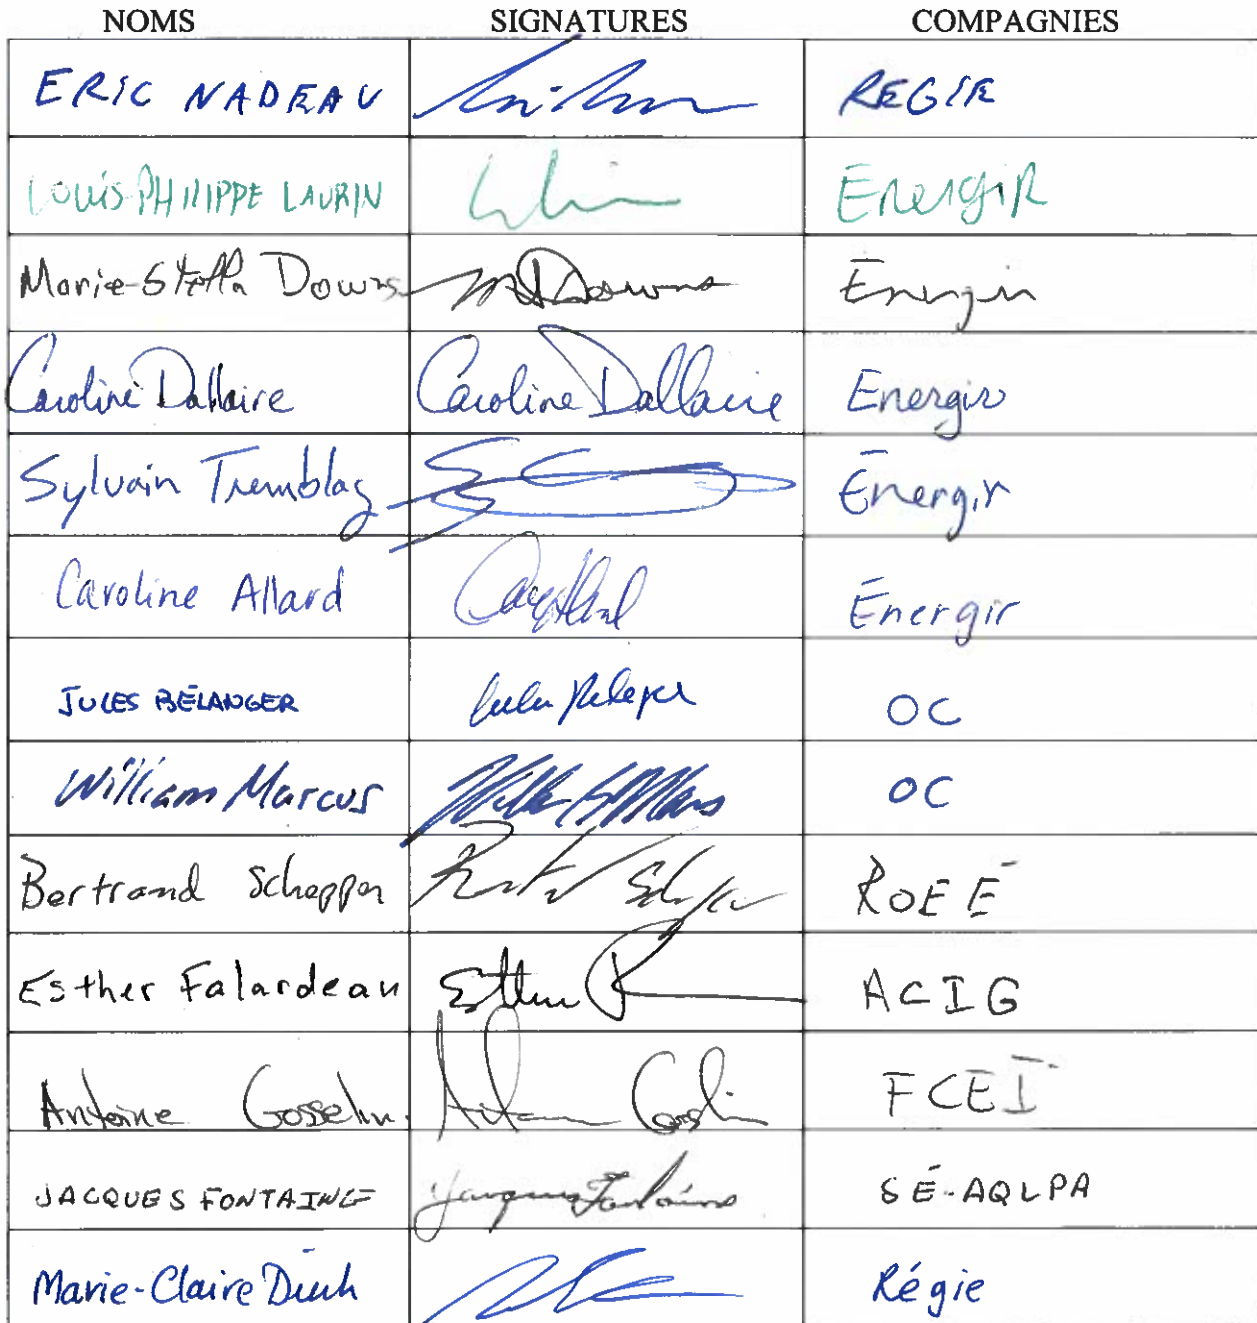 NOMS SIGNATURES COMPAGNIES
ERIC NADEAU REGIE
LOUIS-PHILIPPE LAURIN ÉnergiR
Marie-Stella Downs MSDowns Énergir
Caroline Dallaire Caroline Dallaire Energir
Sylvain Tremblay Énergir
Caroline Allard Énergir
JULES BÉLANGER OC
William Marcus OC
Bertrand Schepper ROEÉ
Esther Falardeau Esther ACIG
Antoine Gosselin FCEI
JACQUES FONTAINE Jacques Fontaine SÉ-AQLPA
Marie-Claire Régie